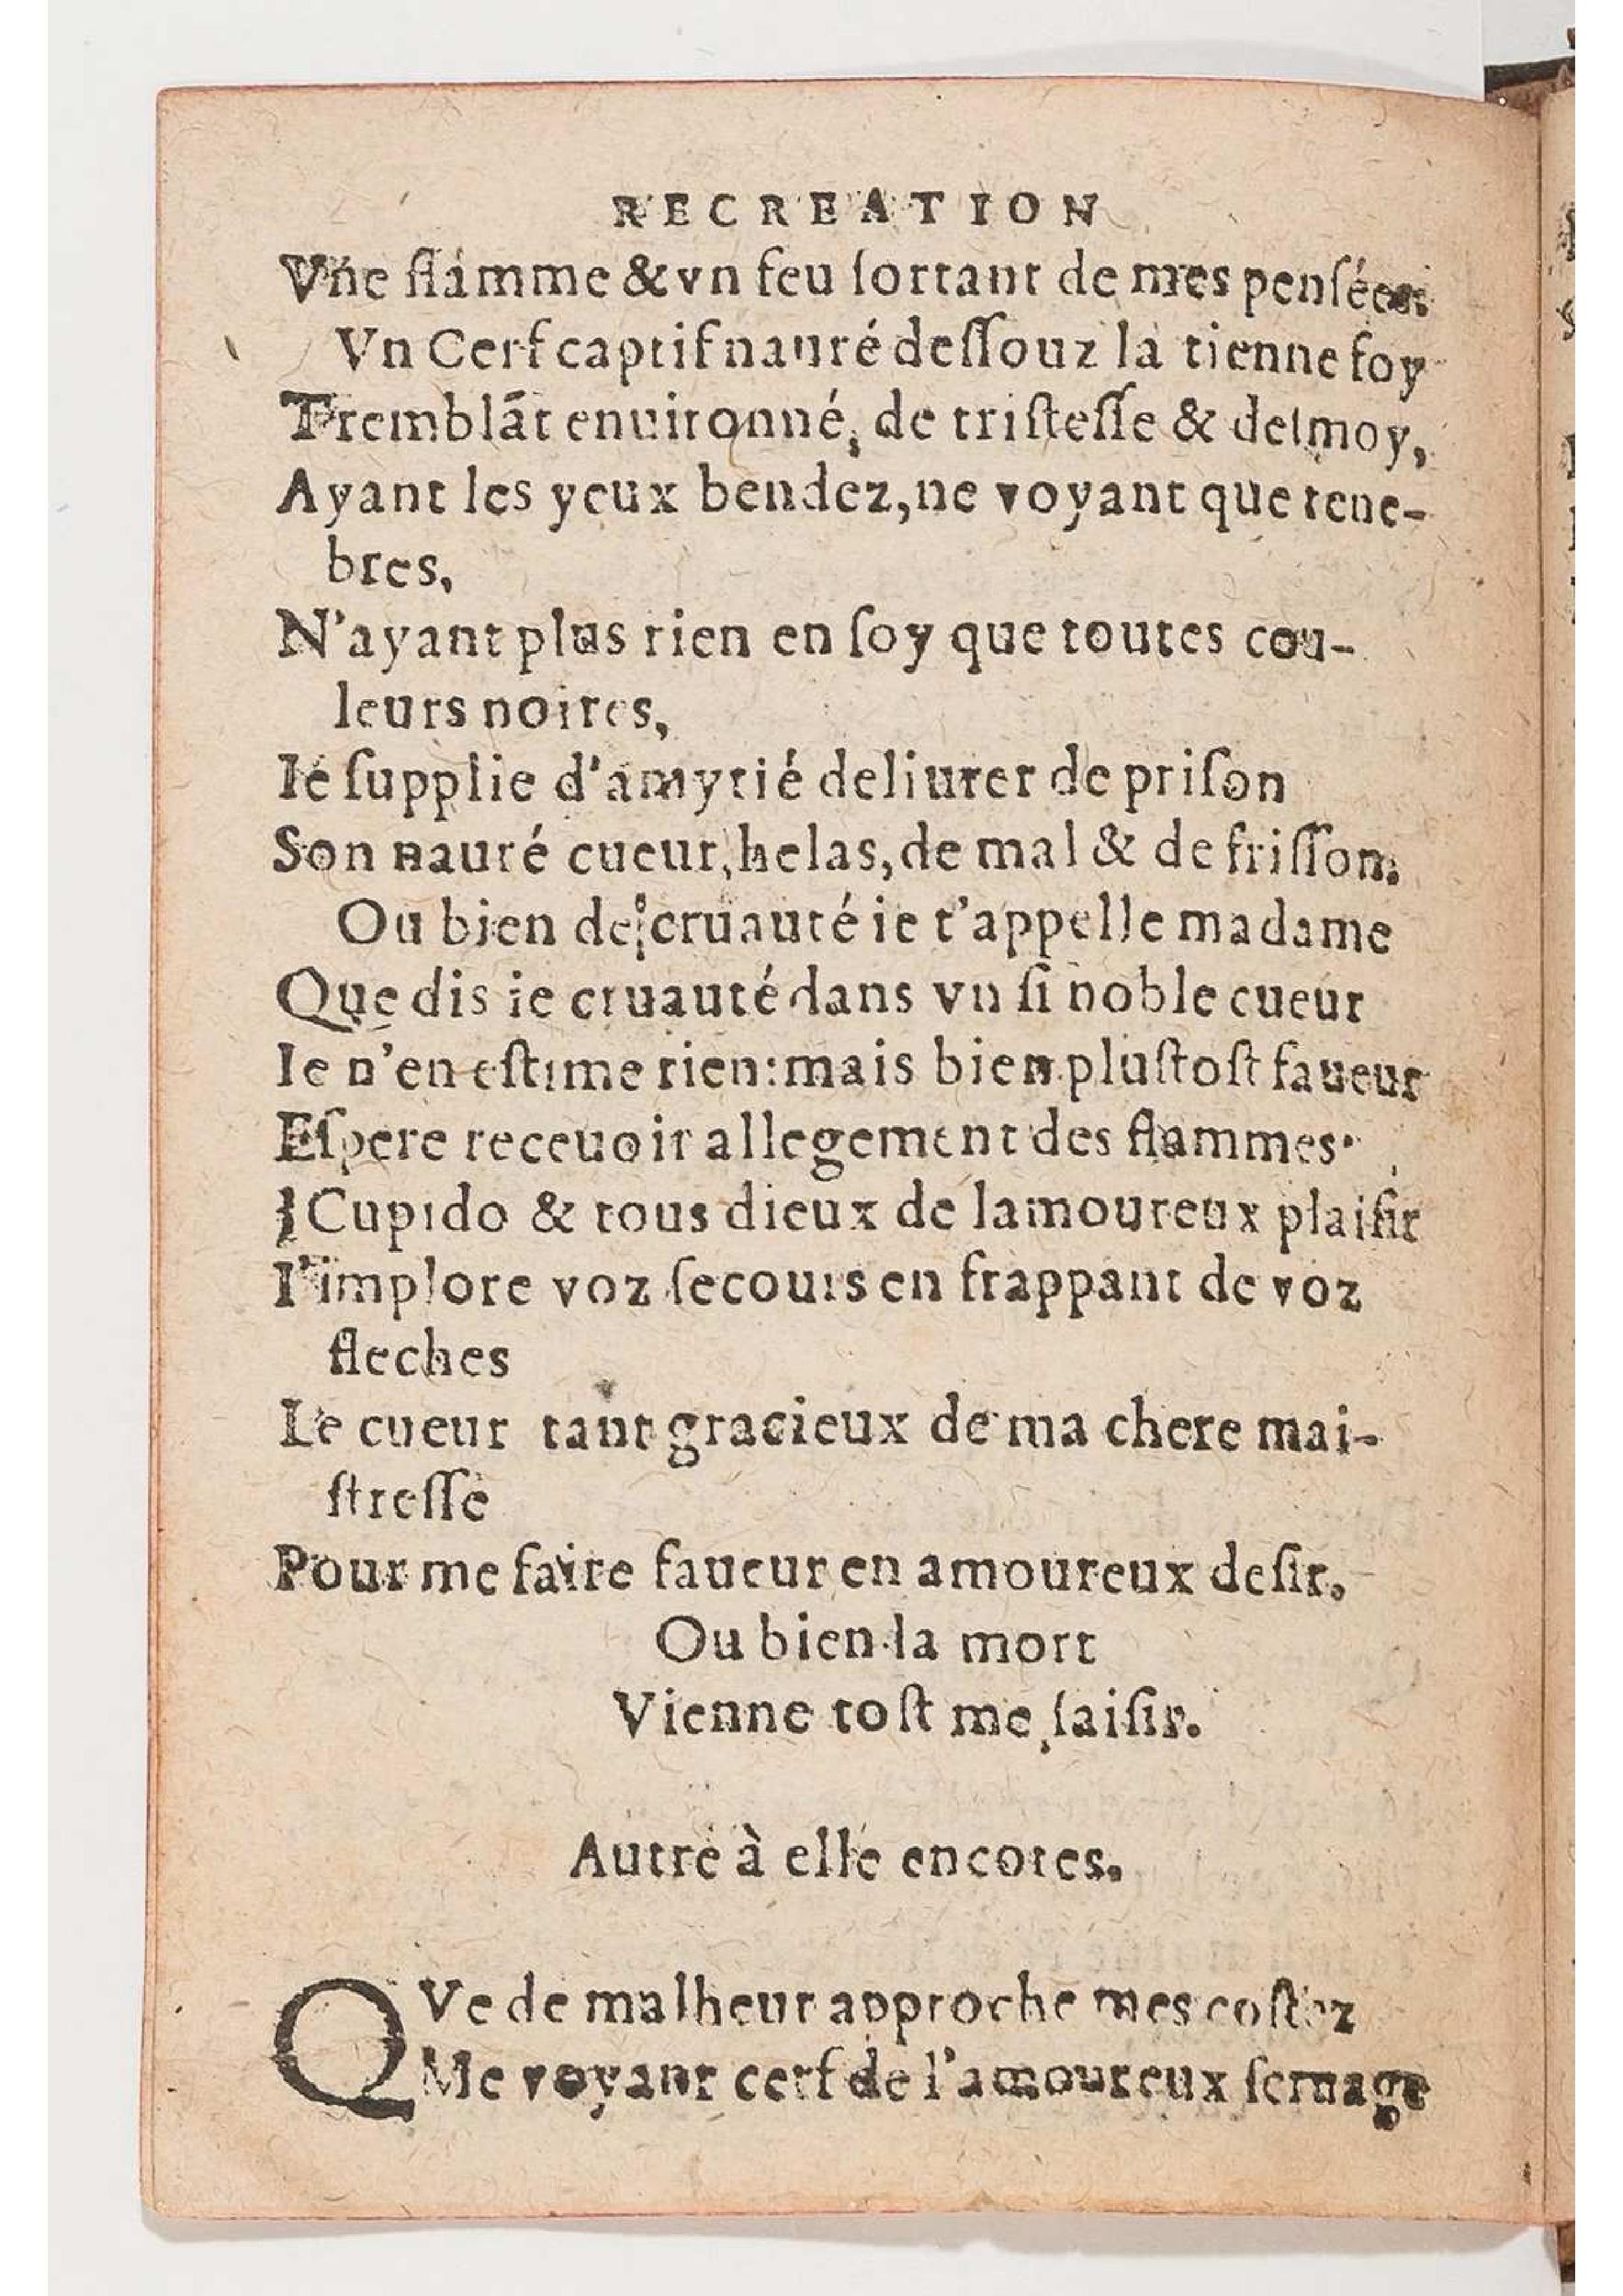 RECREATION
Vne flamme & vn feu ſortant de mes penſées
Vn Cerf captif nauré deſſouz la tienne foy
Tremblãt enuironné, de triſteſſe & deſmoy,
Ayant les yeux bendez, ne voyant que tene-
bres,
N'ayant plus rien en ſoy que toutes cou-
leurs noires,
Ie ſupplie d'amytié deliurer de priſon
Son nauré cueur, helas, de mal & de friſſon.
Ou bien de cruauté ie t'appelle madame
Que dis ie cruauté dans vn ſi noble cueur
Ie n'en eſtime rien: mais bien pluſtoſt faueur
Eſpere receuoir allegement des flammes.
Cupido & tous dieux de lamoureux plaiſir
I'implore voz ſecours en frappant de voz
fleches
Le cueur tant gracieux de ma chere mai-
ſtreſſe
Pour me faire faueur en amoureux deſir.
Ou bien la mort
Vienne toſt me ſaiſir.
Autre à elle encores.
QVe de malheur approche mes coſtez
Me voyant cerf de l'amoureux ſeruage